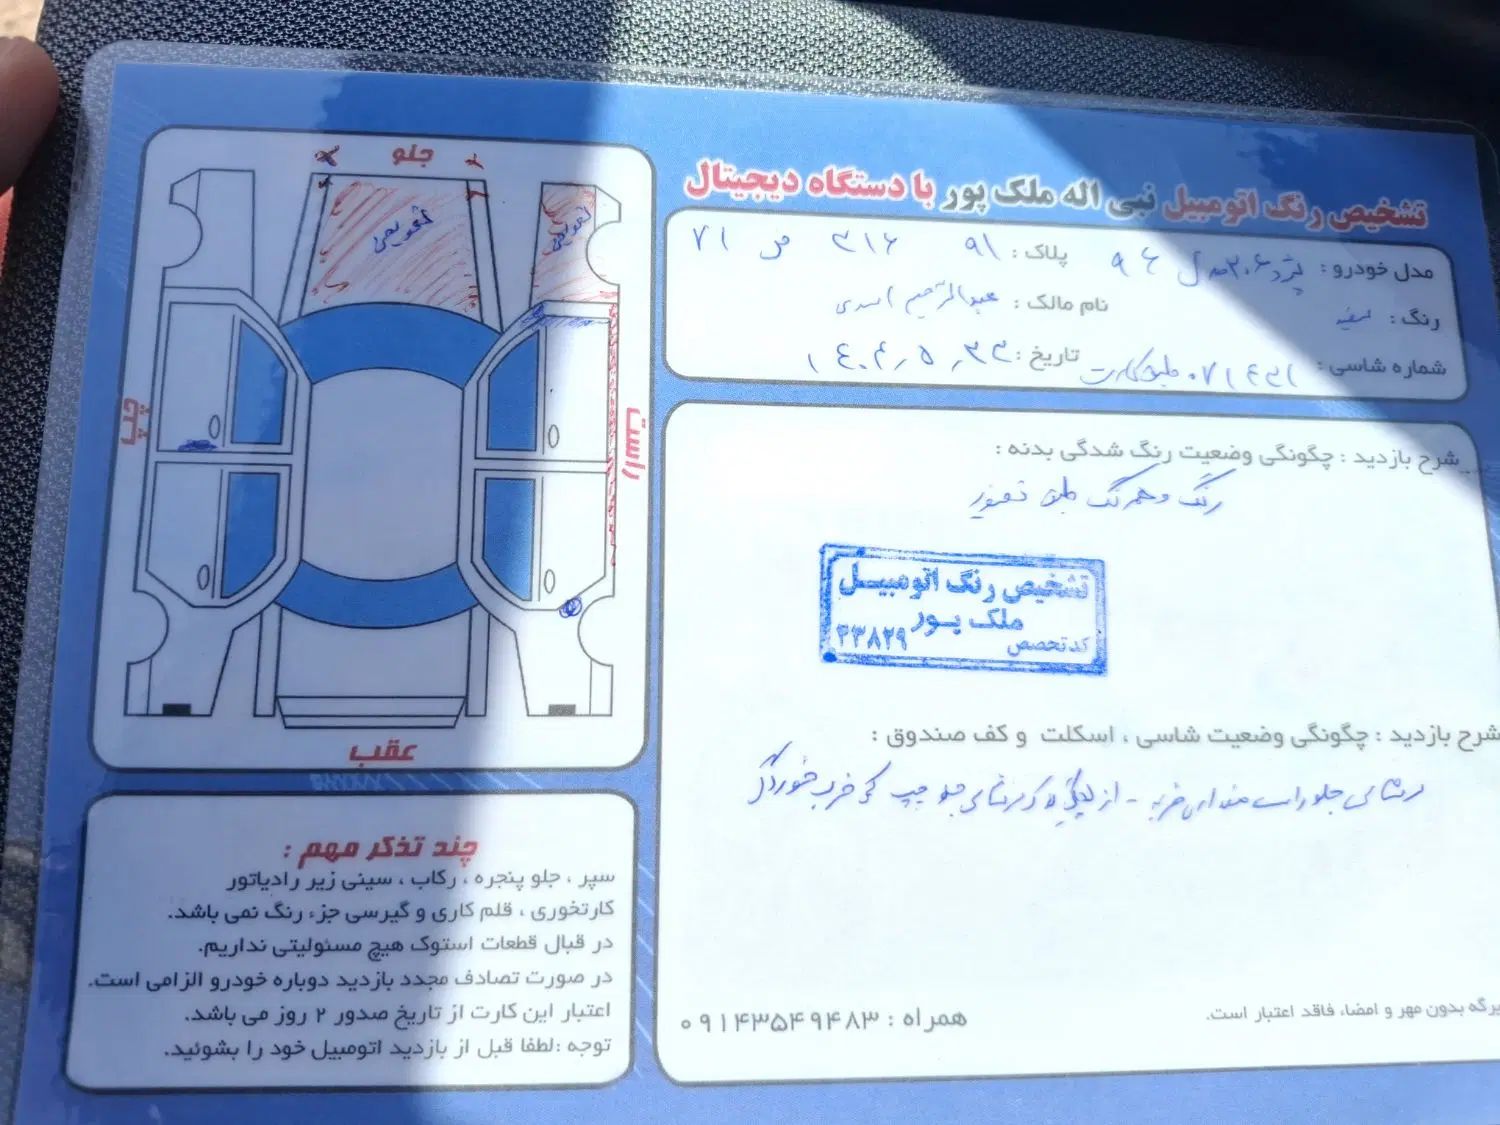 تشخیص رنگ اتومبیل نبی اله ملک پور با دستگاه دیجیتال
مدل خودرو : پژو ۲۰۶ مدل ۹۶ پلاک : ۹۱
رنگ : سفید نام مالک : عبدالرحیم اسدی
شماره شاسی : طبق کارت تاریخ :
شرح بازدید : چگونگی وضعیت رنگ شدگی بدنه :
رنگ و همرنگ طبق تصویر
تشخیص رنگ اتومبیل
ملک پور
کد تخصص ۲۳۸۲۹
شرح بازدید : چگونگی وضعیت شاسی ، اسکلت و کف صندوق :
همراه : ۰۹۱۴۳۵۴۹۴۸۳
برگه بدون مهر و امضاء فاقد اعتبار است.
جلو
تعویض
تعویض
چپ
راست
عقب
چند تذکر مهم :
سپر ، جلو پنجره ، رکاب ، سینی زیر رادیاتور
کارتخوری ، قلم کاری و گیرسی جزء رنگ نمی باشد.
در قبال قطعات استوک هیچ مسئولیتی نداریم.
در صورت تصادف مجدد بازدید دوباره خودرو الزامی است.
اعتبار این کارت از تاریخ صدور ۲ روز می باشد.
توجه :لطفا قبل از بازدید اتومبیل خود را بشوئید.